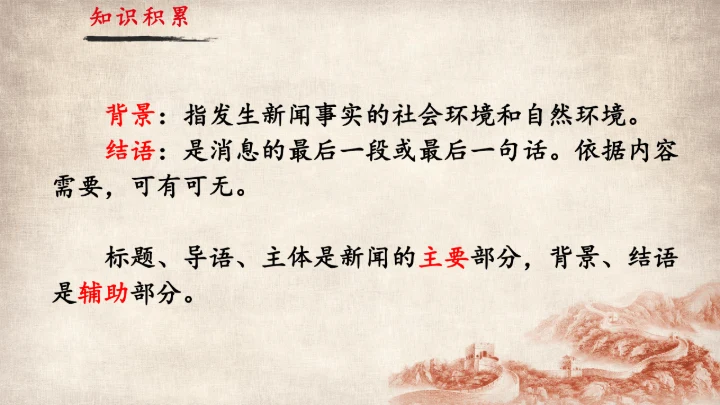 知识积累
背景：指发生新闻事实的社会环境和自然环境。
结语：是消息的最后一段或最后一句话。依据内容
需要，可有可无。
标题、导语、主体是新闻的主要部分，背景、结语
是辅助部分。